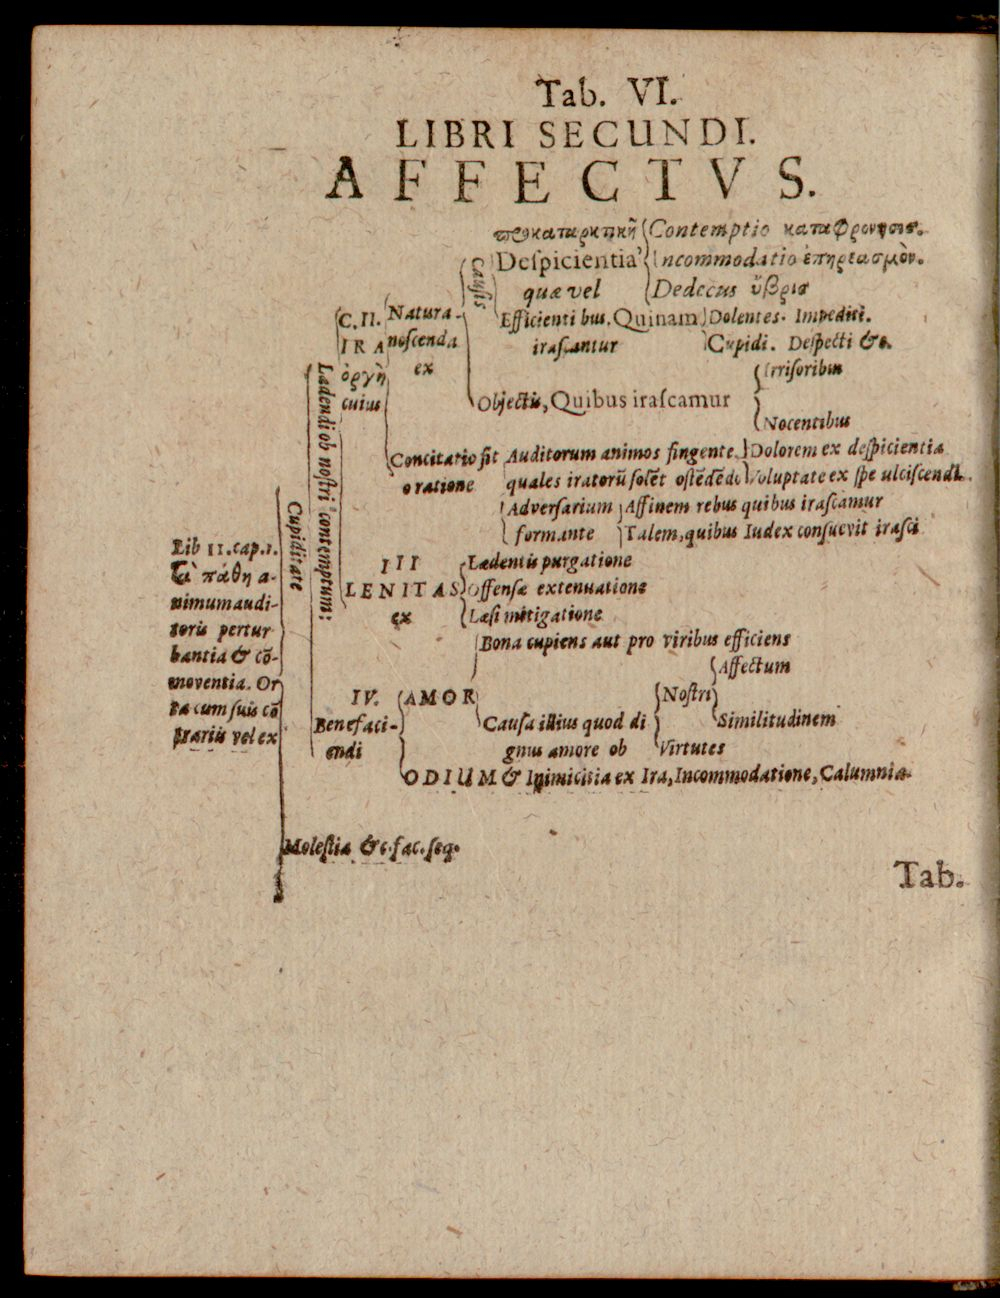 Tab. VI.
LIBRI SECUNDI.
AFFECTVS.
προκαταρκτικῆ Contemptio καταφρονησις.
Causis Despicientia Incommodatio ἐπηρεασμὸν.
quæ vel Dedecus ὕβρις
C. II. Natura Efficientibus, Quinam Dolentes. Impediti.
IRA noscenda irascantur Cupidi. Despecti &c.
ὀργὴ ex Irrisoribus
cuius Objectis, Quibus irascamur
Nocentibus
Concitatio fit Auditorum animos fingente Dolorem ex despicientia
oratione quales iratorū solēt ostēdēdo Voluptate ex spe ulciscendi.
Adversarium Affinem rebus quibus irascamur
formante Talem, quibus Iudex consuevit irasci
Lædendi ob nostri contemptum:
Cupiditate
III Lædentis purgatione
LENITAS Offensæ extenuatione
ex Læsi mitigatione
Lib II. cap. 1.
Τὰ πάθη a-
nimum audi-
toris pertur
bantia & cō-
moventia. Or
ta cum suis cō
trariis vel ex
Bona cupiens aut pro viribus efficiens
Affectum
IV. AMOR Nostri
Benefaci- Causa illius quod di Similitudinem
endi gnus amore ob Virtutes
ODIUM & Inimicitia ex Ira, Incommodatione, Calumnia.
Molestia &c. fac. seq.
Tab.